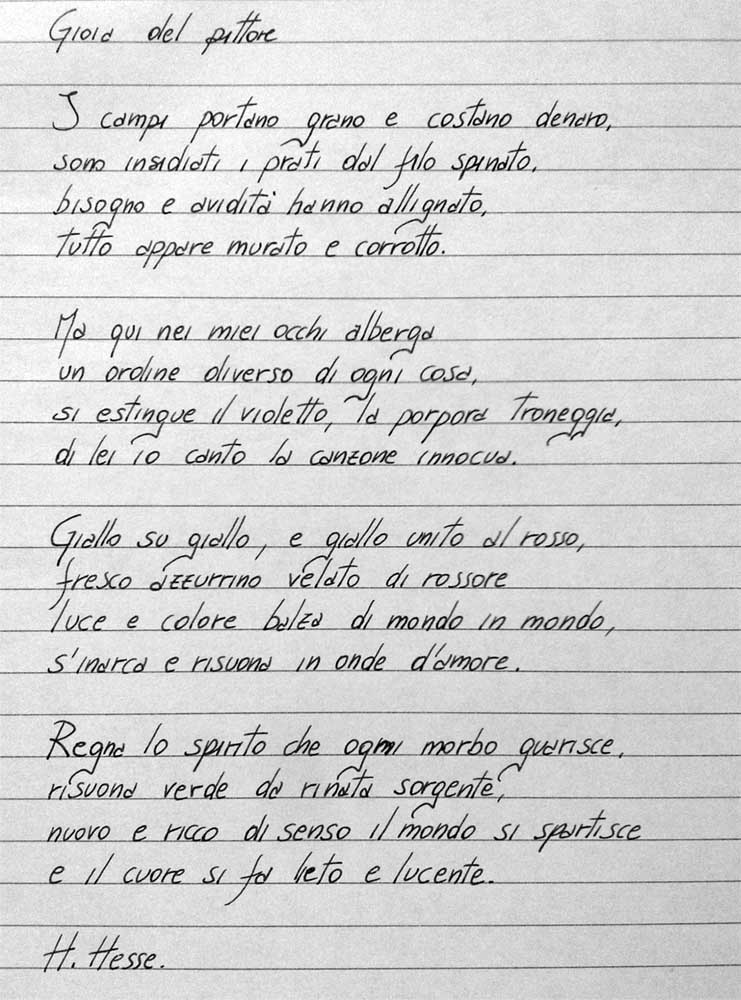 Gioia del pittore
I campi portano grano e costano denaro,
sono insidiati i prati dal filo spinato,
bisogno e avidità hanno allignato,
tutto appare murato e corrotto.
Ma qui nei miei occhi alberga
un ordine diverso di ogni cosa,
si estingue il violetto, la porpora troneggia,
di lei io canto la canzone innocua.
Giallo su giallo, e giallo unito al rosso,
fresco azzurrino velato di rossore
luce e colore balza di mondo in mondo,
s'inarca e risuona in onde d'amore.
Regna lo spirito che ogni morbo guarisce,
risuona verde da rinata sorgente,
nuovo e ricco di senso il mondo si spartisce
e il cuore si fa lieto e lucente.
H. Hesse.